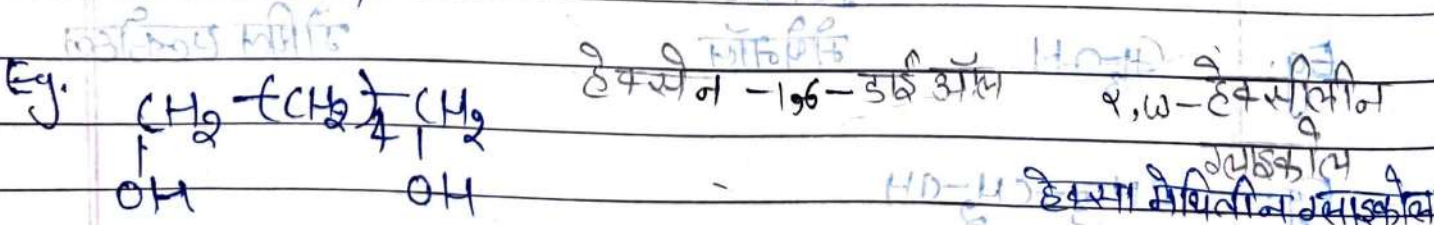 Eg. CH2-(CH2)4-CH2 हेक्सेन -1,6- डाई ऑल α,ω-हेक्सीलीन
OH OH ग्लाइकोल
हेक्सा मेथिलीन ग्लाइकोल